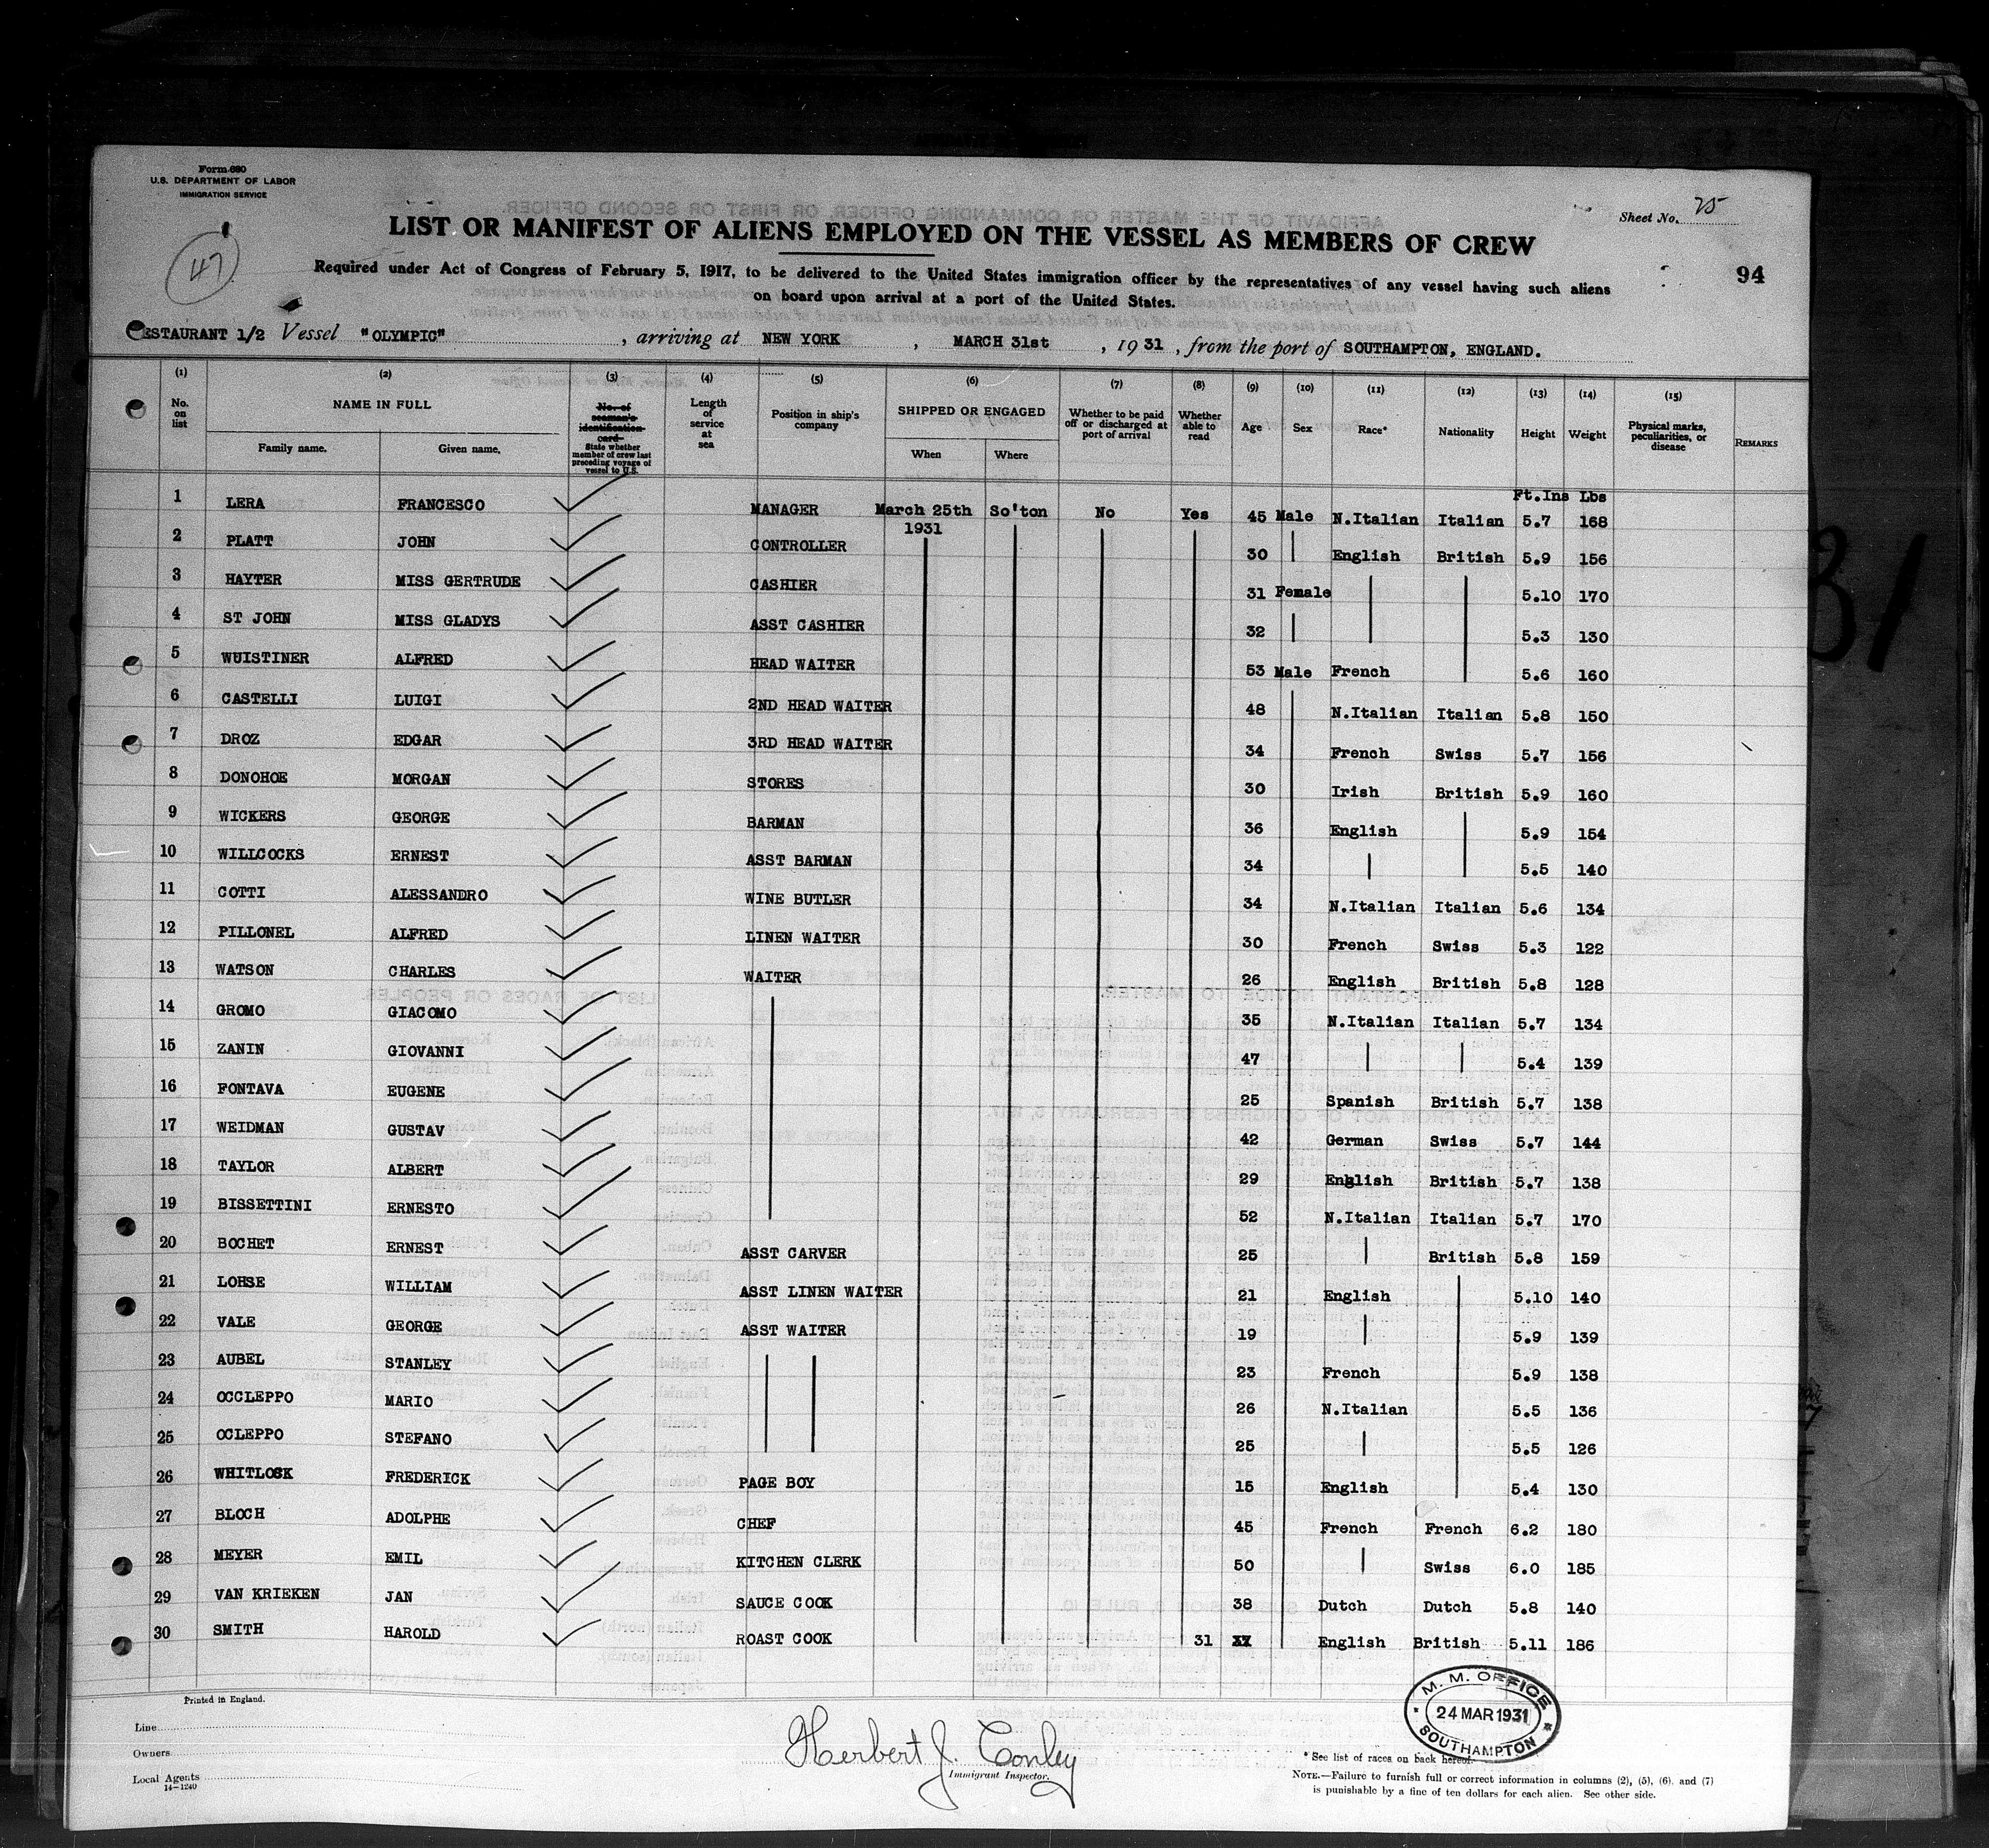 Form 680
U.S. DEPARTMENT OF LABOR
IMMIGRATION SERVICE
47
Sheet No. 25
LIST OR MANIFEST OF ALIENS EMPLOYED ON THE VESSEL AS MEMBERS OF CREW
94
Required under Act of Congress of February 5, 1917, to be delivered to the United States immigration officer by the representatives of any vessel having such aliens
on board upon arrival at a port of the United States.
ESTAURANT 1/2 Vessel "OLYMPIC", arriving at NEW YORK, MARCH 31st, 1931, from the port of SOUTHAMPTON, ENGLAND.
(1) (2) (3) (4) (5) (6) (7) (8) (9) (10) (11) (12) (13) (14) (15)
No. on list NAME IN FULL Family name. Given name. No. of seaman's identification card State whether member of crew last preceding voyage of vessel to U.S. Length of service at sea Position in ship's company SHIPPED OR ENGAGED When Where Whether to be paid off or discharged at port of arrival Whether able to read Age Sex Race* Nationality Height Weight Physical marks, peculiarities, or disease REMARKS
Ft.Ins Lbs
1 LERA FRANCESCO MANAGER March 25th 1931 So'ton No Yes 45 Male N.Italian Italian 5.7 168
2 PLATT JOHN CONTROLLER 30 English British 5.9 156
3 HAYTER MISS GERTRUDE CASHIER 31 Female 5.10 170
4 ST JOHN MISS GLADYS ASST CASHIER 32 5.3 130
5 WUISTINER ALFRED HEAD WAITER 53 Male French 5.6 160
6 CASTELLI LUIGI 2ND HEAD WAITER 48 N.Italian Italian 5.8 150
7 DROZ EDGAR 3RD HEAD WAITER 34 French Swiss 5.7 156
8 DONOHOE MORGAN STORES 30 Irish British 5.9 160
9 WICKERS GEORGE BARMAN 36 English 5.9 154
10 WILLCOCKS ERNEST ASST BARMAN 34 5.5 140
11 COTTI ALESSANDRO WINE BUTLER 34 N.Italian Italian 5.6 134
12 PILLONEL ALFRED LINEN WAITER 30 French Swiss 5.3 122
13 WATSON CHARLES WAITER 26 English British 5.8 128
14 GROMO GIACOMO 35 N.Italian Italian 5.7 134
15 ZANIN GIOVANNI 47 5.4 139
16 FONTAVA EUGENE 25 Spanish British 5.7 138
17 WEIDMAN GUSTAV 42 German Swiss 5.7 144
18 TAYLOR ALBERT 29 English British 5.7 138
19 BISSETTINI ERNESTO 52 N.Italian Italian 5.7 170
20 BOCHET ERNEST ASST CARVER 25 British 5.8 159
21 LOHSE WILLIAM ASST LINEN WAITER 21 English 5.10 140
22 VALE GEORGE ASST WAITER 19 5.9 139
23 AUBEL STANLEY 23 French 5.9 138
24 OCCLEPPO MARIO 26 N.Italian 5.5 136
25 OCLEPPO STEFANO 25 5.5 126
26 WHITLOCK FREDERICK PAGE BOY 15 English 5.4 130
27 BLOCH ADOLPHE CHEF 45 French French 6.2 180
28 MEYER EMIL KITCHEN CLERK 50 Swiss 6.0 185
29 VAN KRIEKEN JAN SAUCE COOK 38 Dutch Dutch 5.8 140
30 SMITH HAROLD ROAST COOK 31 English British 5.11 186
Printed in England.
Line
Owners
Local Agents
14-1240
Herbert J. Conley
Immigrant Inspector.
M. M. OFFICE
24 MAR 1931
SOUTHAMPTON
* See list of races on back hereof.
NOTE.—Failure to furnish full or correct information in columns (2), (5), (6), and (7)
is punishable by a fine of ten dollars for each alien. See other side.